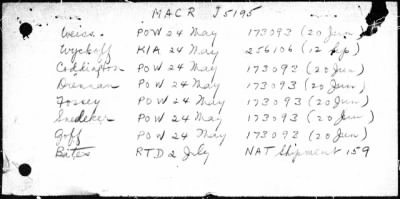 MACR J5195
Weiss. POW 24 May 173093 (20 Jun)
Wyckoff KIA 24 May 256106 (12 Sep)
Coddington POW 24 May 173093 (20 Jun)
Drennan POW 24 May 173093 (20 Jun)
Fossey POW 24 May 173093 (20 Jun)
Snedeker POW 24 May 173093 (20 Jun)
Goff POW 24 May 173093 (20 Jun)
Bates RTD 2 July NAT Shipment 159